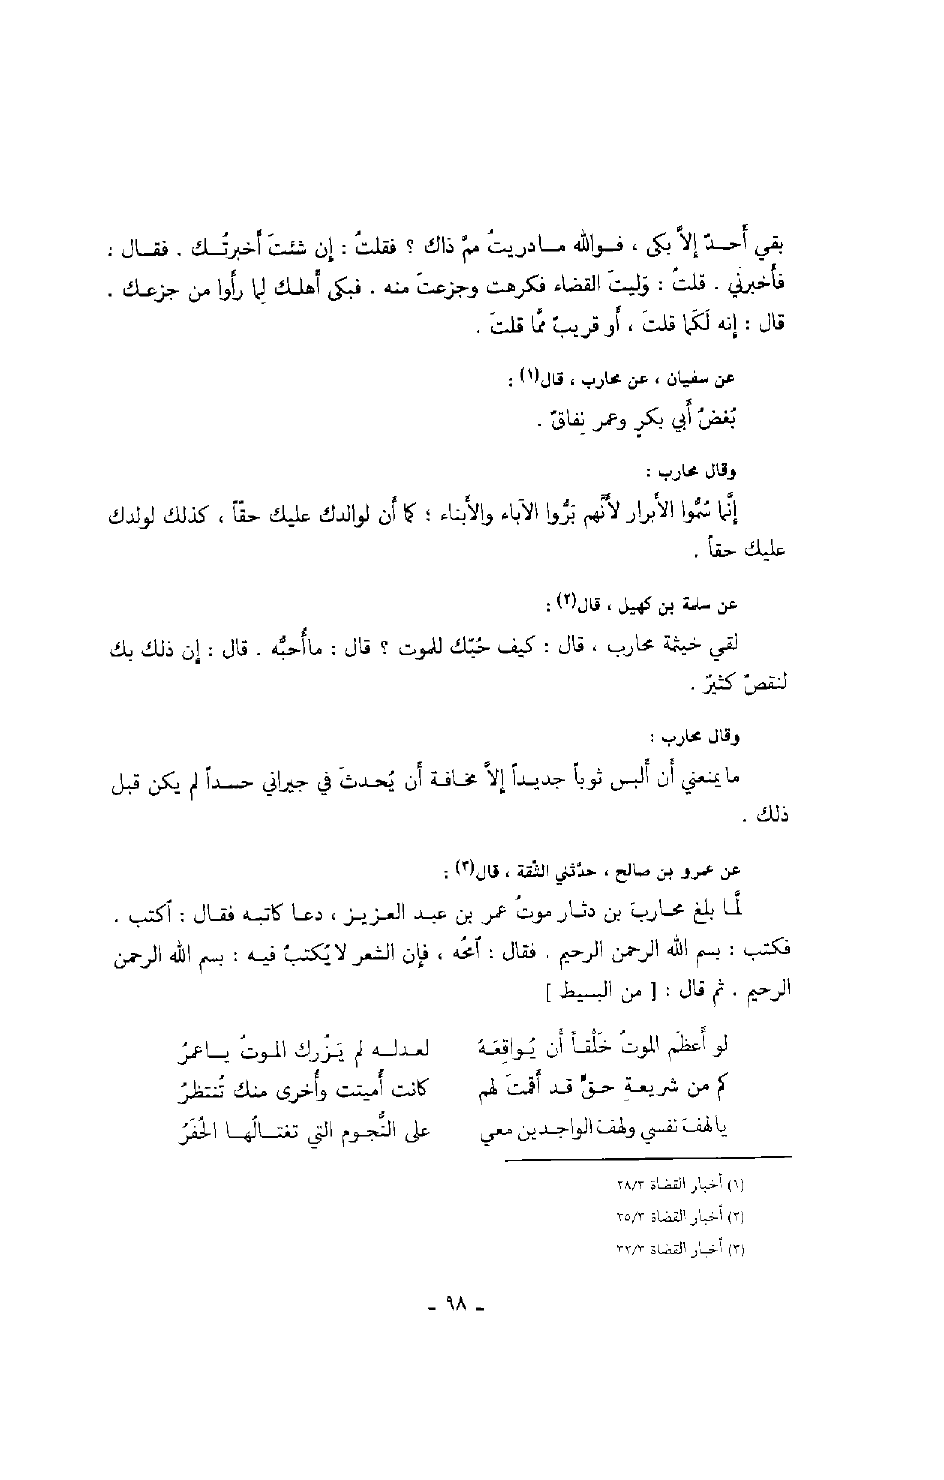 بقي أحدٌ إلاَّ بكى ، فوالله مادريتُ ممَّ ذاك ؟ فقلتُ : إن شئتَ أخبرتُك . فقال :
فأخبرني . قلتُ : وَليتَ القضاء فكرهت وجزعتَ منه . فبكى أهلك لِما رأوا من جزعك .
قال : إنه لَكَما قلتَ ، أو قريبٌ ممَّا قلتَ .
عن سفيان ، عن محارب ، قال(١) :
بُغضُ أبي بكرٍ وعمر نِفاقٌ .
وقال محارب :
إنَّما سُمُّوا الأبرار لأنَّهم بَرُّوا الآباء والأبناء ؛ كما أن لوالدك عليك حقاً ، كذلك لولدك
عليك حقاً .
عن سلمة بن كهيل ، قال(٢) :
لقي خيثمة محارب ، قال : كيف حُبّك للموت ؟ قال : ماأُحبُّه . قال : إن ذلك بك
لنقصٌ كثيرٌ .
وقال محارب :
مايمنعني أن ألبس ثوباً جديداً إلاَّ مخافة أن يُحدثَ في جيراني حسداً لم يكن قبل
ذلك .
عن عمرو بن صالح ، حدّثني الثّقة ، قال(٣) :
لَّما بلغ محاربَ بن دثار موتُ عمر بن عبد العزيز ، دعا كاتبه فقال : اَكتب .
فكتب : بسم الله الرحمن الرحيم . فقال : اَمحُه ، فإن الشعر لايُكتبُ فيه : بسم الله الرحمن
الرحيم . ثم قال : [ من البسيط ]
لو أعظَم الموتُ خَلْقاً أن يُواقِعَهُ لعدله لم يَزُرك الموتُ ياعمرُ
كم من شريعةِ حقٍّ قد أقمتَ لهم كانت أُميتت وأُخرى منك تُنتظرُ
يالهفَ نفسي ولهفَ الواجدين معي على النُّجوم التي تغتالُها الحُفَرُ
(١) أخبار القضاة ٢٨/٣
(٢) أخبار القضاة ٣٥/٣
(٣) أخبار القضاة ٣٢/٣
ـ ٩٨ ـ